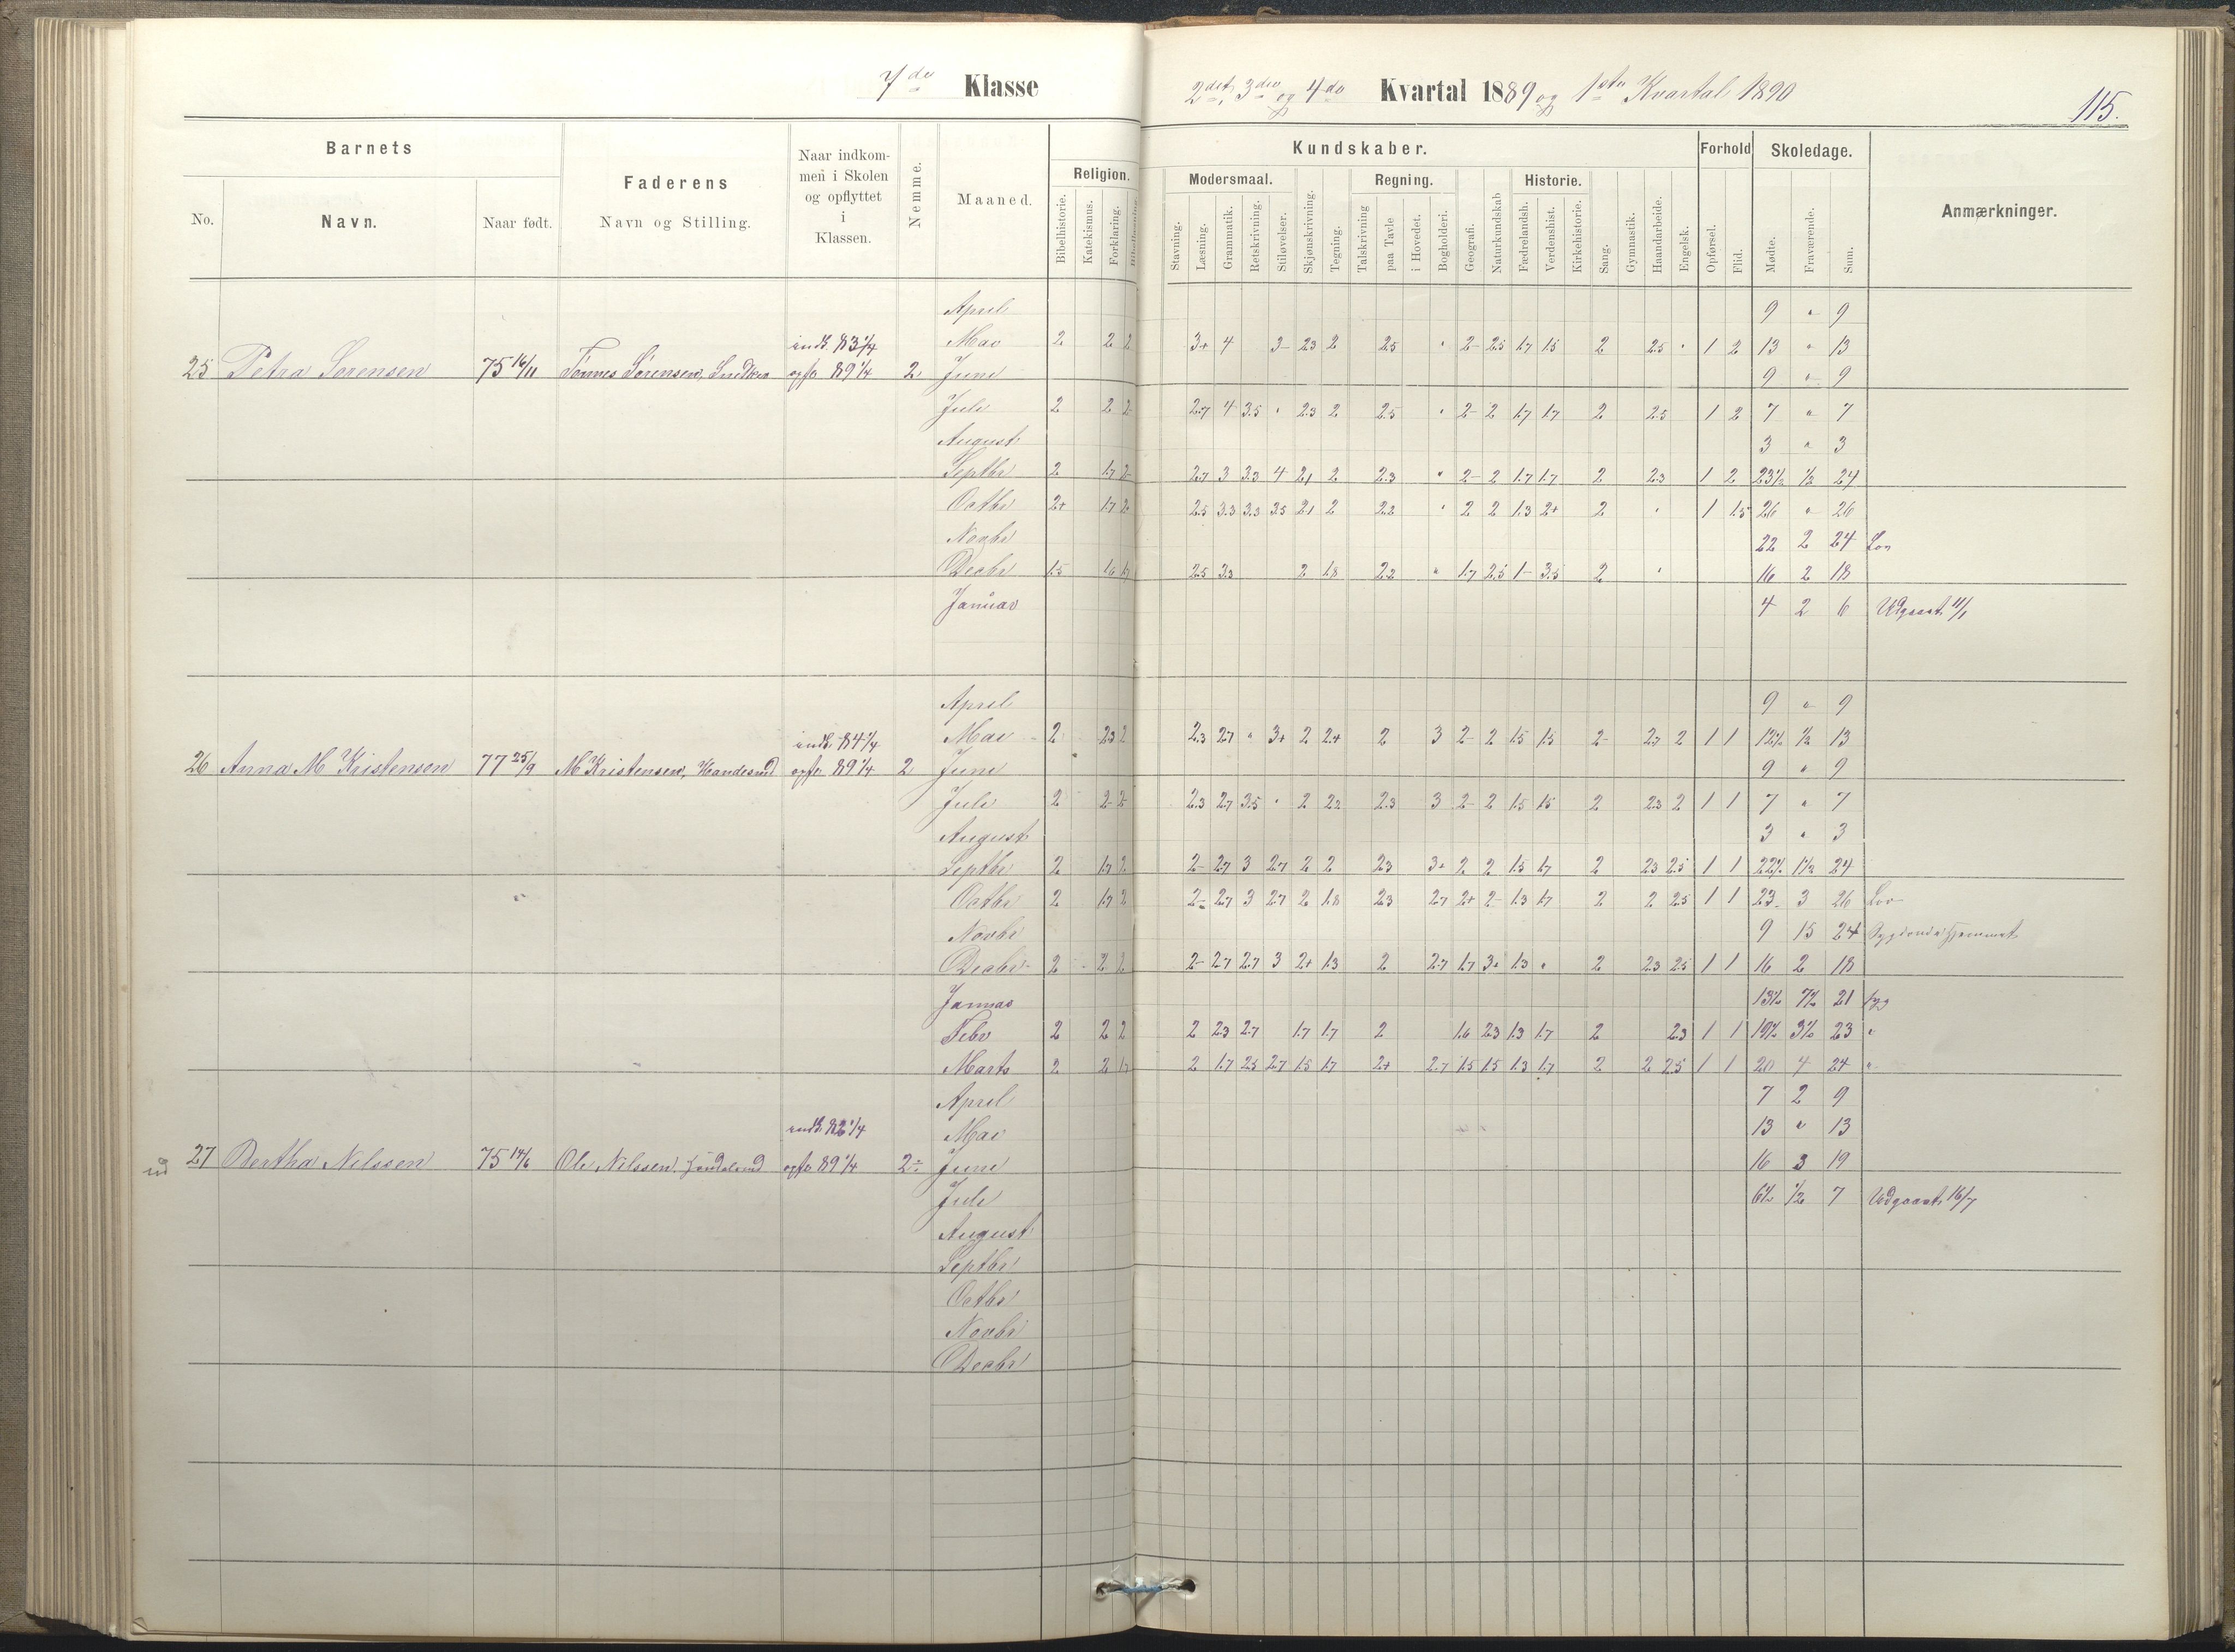 7de Klasse 2det, 3die og 4de Kvartal 1889 og 1ste Kvartal 1890
115.
Barnets
Faderens
Naar indkommen i Skolen og opflyttet i Klassen.
Nemme.
Maaned.
Kundskaber.
Forhold
Skoledage.
Anmærkninger.
No. Navn. Naar født. Navn og Stilling.
Religion. Modersmaal. Regning. Historie.
Bibelhistorie. Katekismus. Forklaring. Stavning. Læsning. Grammatik. Retskrivning. Stiløvelser. Skjønskrivning. Tegning. Talskrivning paa Tavle i Hovedet. Bogholderi. Geografi. Naturkundskab Fædrelandsh. Verdenshist. Kirkehistorie. Sang. Gymnastik. Haandarbeide. Engelsk. Opførsel. Flid. Mødte. Fraværende. Sum.
April 9 " 9
indk. 83 1/4 Mai 2 2 2 3+ 4 3- 2.3 2 2.5 " 2- 2.5 1.7 1.5 2 2.5 " 1 2 13 " 13
25 Petra Sørensen 75 16/11 Tønnes Sørensen, Snedker opfl. 89 1/4 2 Juni 9 " 9
Juli 2 2 2- 2.7 4 3.5 " 2.3 2 2.5 " 2- 2 1.7 1.7 2 2.5 1 2 7 " 7
August 3 " 3
Septbr 2 1.7 2- 2.7 3 3.3 4 2.1 2 2.3 " 2- 2 1.7 1.7 2 2.3 1 2 23 1/2 1/2 24
Octbr 2+ 1.7 2- 2.5 3.3 3.3 3.5 2.1 2 2.2 " 2 2 1.3 2+ 2 " 1 1.5 26 " 26
Novbr 22 2 24 Lov
Decbr 1.5 1.6 1.7 2.5 3.3 2 1.8 2.2 " 1.7 2.5 1- 3.5 2 " 16 2 18
Januar 4 2 6 Udgaaet 11/1
April 9 " 9
indk. 84 1/4 Mai 2 2.3 2 2.3 2.7 " 3+ 2 2+ 2 3 2- 2 1.5 1.5 2- 2.7 2 1 1 12 1/2 1/2 13
26 Anna M Kristensen 77 25/9 M Kristensen, opfl. 89 1/4 2 Juni 9 " 9
Juli 2 2- 2- 2.3 2.7 3.5 " 2 2.2 2.3 3 2- 2 1.5 1.5 2 2.3 2 1 1 7 " 7
August 3 " 3
Septbr 2 1.7 2 2- 2.7 3 2.7 2 2 2.3 3+ 2 2 1.5 1.7 2 2.3 2.5 1 1 22 1/2 1 1/2 24
Octbr 2 1.7 2 2- 2.7 3 2.7 2 1.8 2.3 2.7 2+ 2- 1.3 1.7 2 2 2.5 1 1 23 3 26 Lov
Novbr 9 15 24 Sygdom i Hjemmet
Decbr 2 2 2 2- 2.7 2.7 3 2+ 1.3 2 2.7 1.7 3+ 1.3 " 2 2.3 2.5 1 1 16 2 18
Januar 13 1/2 7 1/2 21 syg
Febr 2 2 2 2 2.3 2.7 1.7 1.7 2 1.6 2.3 1.3 1.7 2 2.3 1 1 19 1/2 3 1/2 23 "
Marts 2 2 1.7 2 1.7 2.5 2.7 1.5 1.7 2+ 2.7 1.5 1.5 1.3 1.7 2 2 2.5 1 1 20 4 24 "
April 7 2 9
indk. 82 1/4 Mai 13 " 13
ud 27 Bertha Nilssen 75 14/6 Ole Nilssen, opfl. 89 1/4 2- Juni 16 3 19
Juli 6 1/2 1/2 7 Udgaaet 16/7
August
Septbr
Octbr
Novbr
Decbr